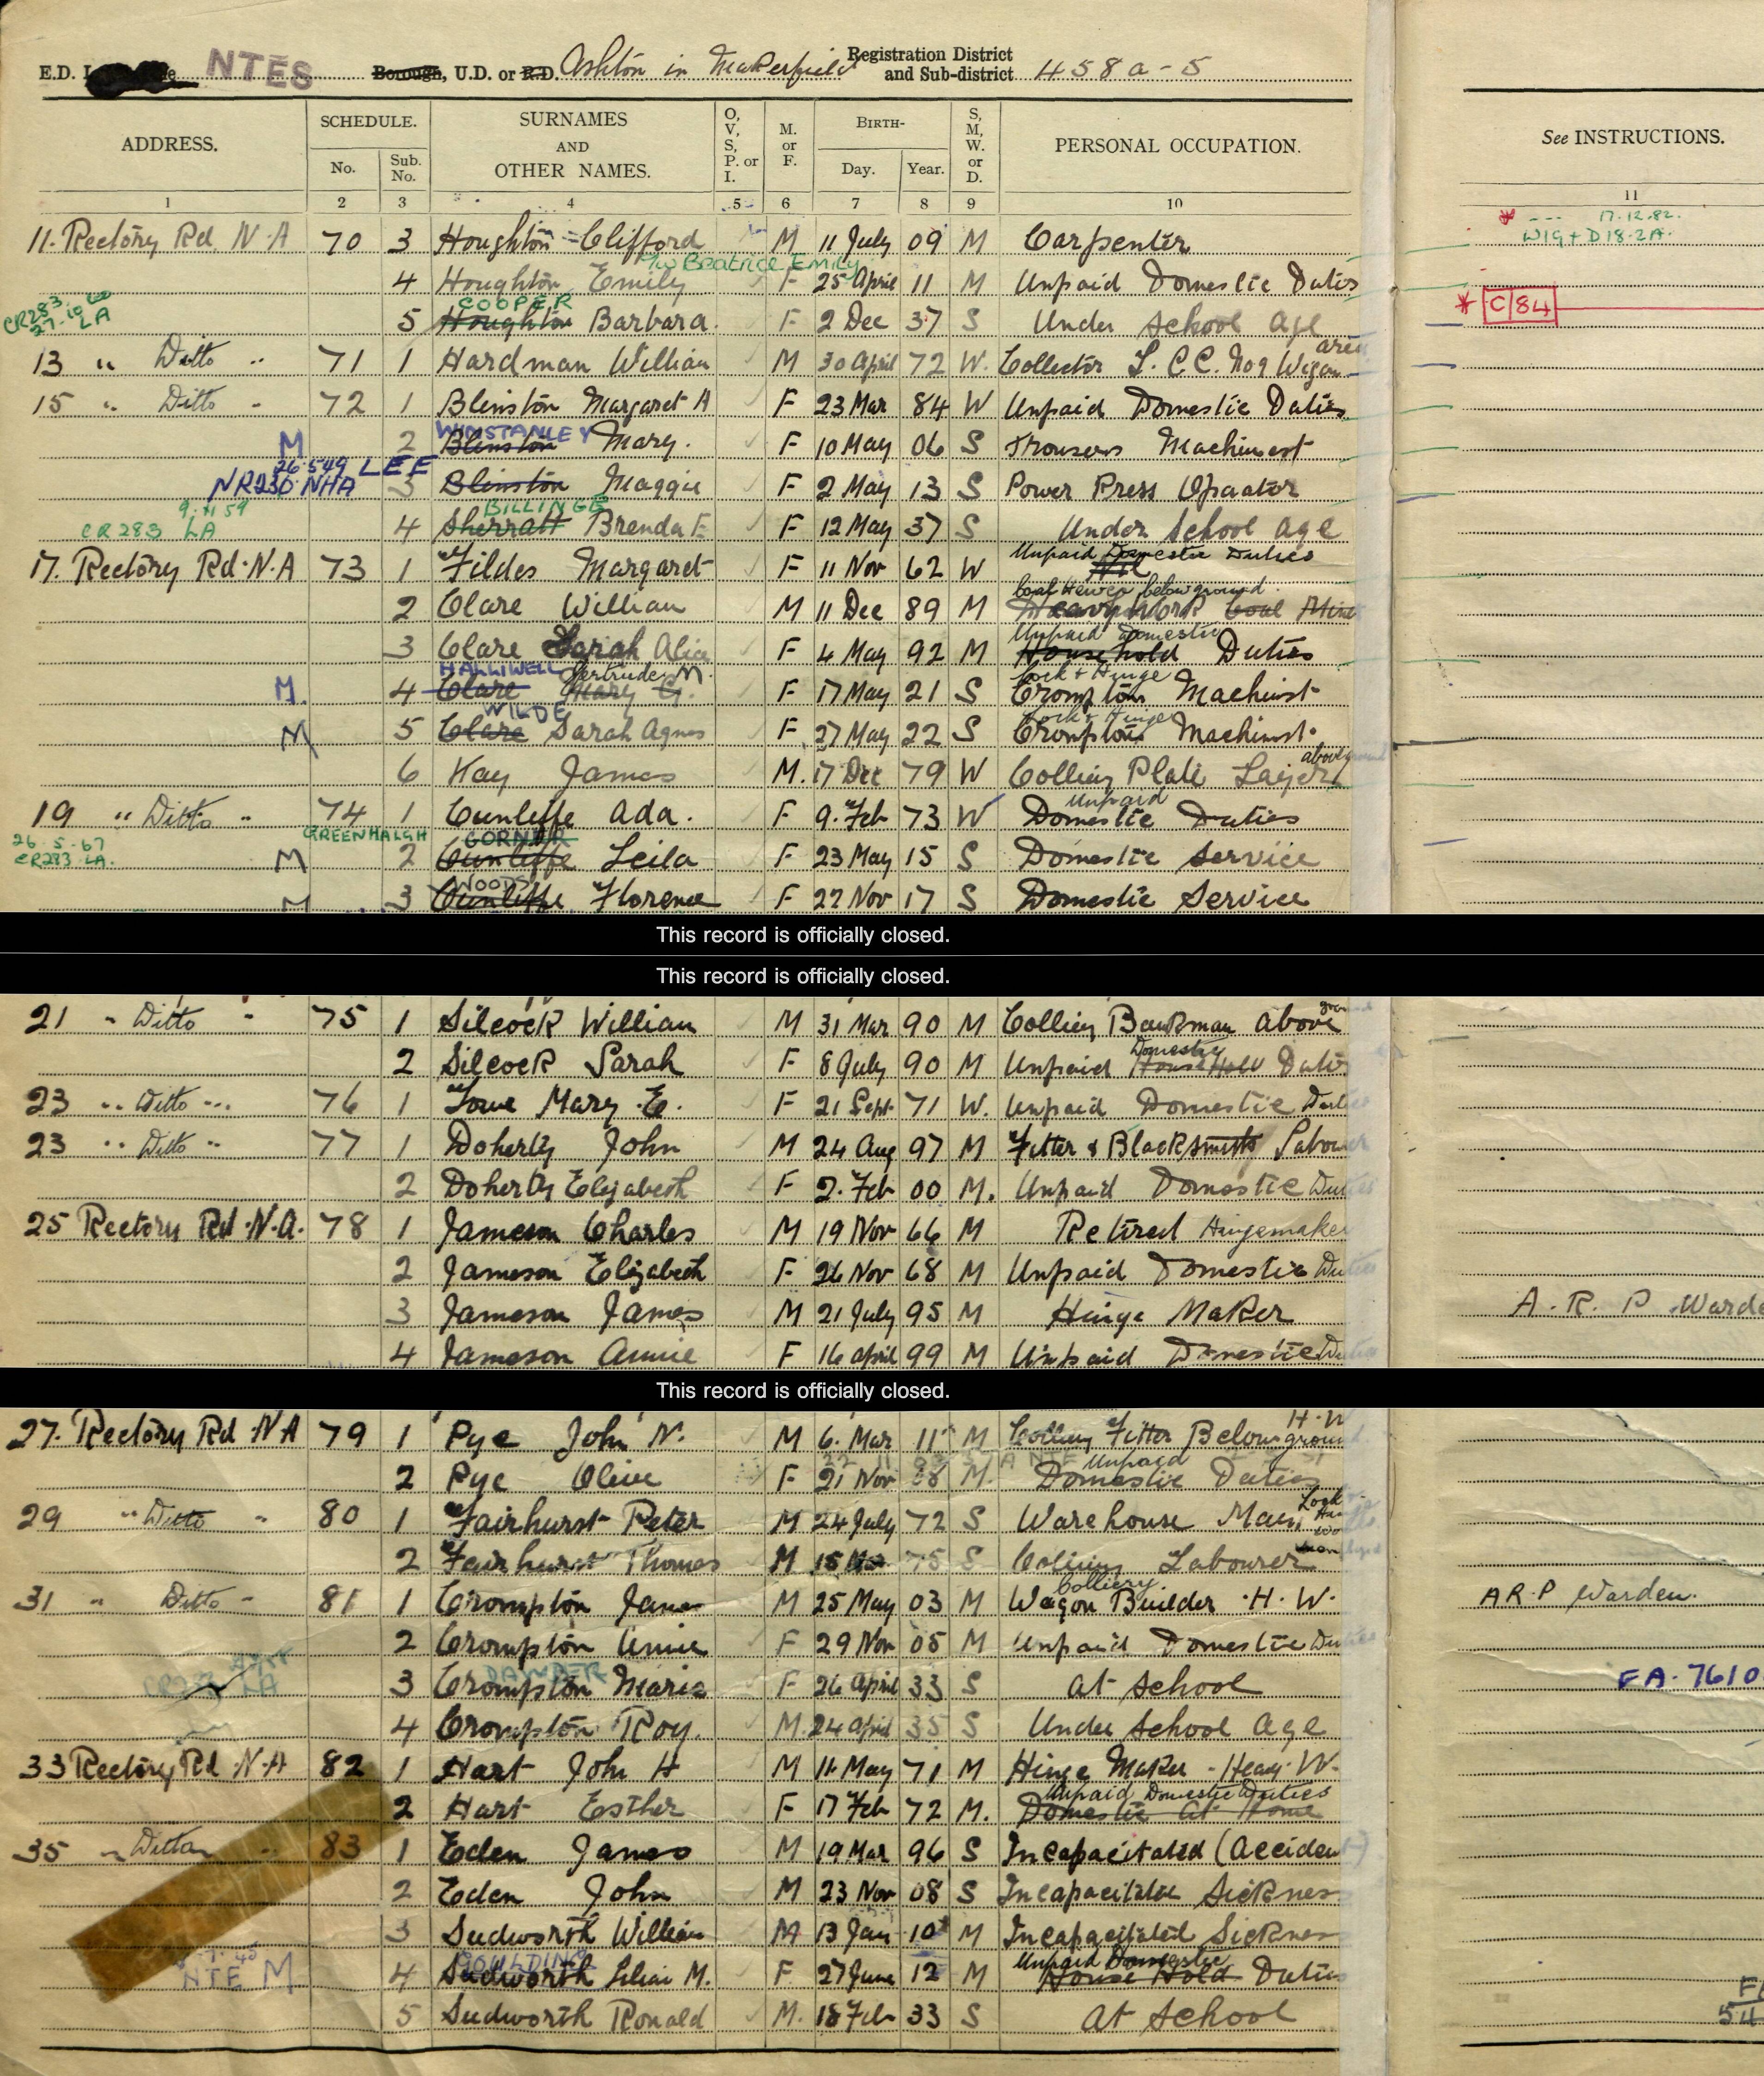 E.D. NTES Borough, U.D. or R.D. Ashton in Makerfield Registration District and Sub-district 458a-5
ADDRESS. SCHEDULE. No. Sub. No. SURNAMES AND OTHER NAMES. O, V, S, P. or I. M. or F. BIRTH- Day. Year. S, M, W. or D. PERSONAL OCCUPATION. See INSTRUCTIONS.
1 2 3 4 5 6 7 8 9 10 11
* --- 17.12.82.
W19+D18.2A.
11. Rectory Rd N.A 70 3 Houghton Clifford M 11 July 09 M Carpenter
Beatrice Emily
4 Houghton Emily F 25 April 11 M Unpaid Domestic Duties
CR283 27.10.60 LA COOPER * C/84
5 Houghton Barbara. F 2 Dec 37 S Under School age
13 " Ditto " 71 1 Hardman William M 30 April 72 W. Collector L.C.C. No 9 Wigan area
15 " Ditto " 72 1 Blinston Margaret A F 23 Mar 84 W Unpaid Domestic Duties
M WINSTANLEY
2 Blinston Mary. F 10 May 06 S Trousers Machinest
26.5.49 LEE
NR230 NHA 3 Blinston Maggie F 2 May 13 S Power Press Opaator
9.11.59 BILLINGE
CR 283 LA 4 Sherratt Brenda E F 12 May 37 S Under School age
17. Rectory Rd. N.A 73 1 Fildes Margaret F 11 Nov 62 W Unpaid Domestic Duties Nil
2 Clare William M 11 Dec 89 M Coal Hewer below ground. Heavy Work Coal Mine
3 Clare Sarah Alice F 4 May 92 M Unpaid Domestic Household Duties
HALLIWELL Gertrude M. Lock + Hinge
M. 4 Clare Mary G. F 17 May 21 S Crompton Machinst
WILDE Lock + Hinge
M 5 Clare Sarah Agnes F 27 May 22 S Crompton Machinst.
6 Kay James M. 17 Dec 79 W Colliery Plate Layer above ground
19 " Ditto " 74 1 Cunliffe Ada. F 9. Feb 73 W Unpaid Domestic Duties
26.5.67 CR283 LA. GREENHALGH GORNER
M 2 Cunliffe Leila F 23 May 15 S Domestic Service
WOODS
M 3 Cunliffe Florence F 22 Nov 17 S Domestic Service
This record is officially closed.
This record is officially closed.
21 " Ditto " 75 1 Silcock William M 31 Mar 90 M Colliery Banksman above
2 Silcock Sarah F 8 July 90 M Unpaid Domestic House Hold Duties
23 " Ditto " 76 1 Lowe Mary E. F 21 Sept 71 W. Unpaid Domestic Duties
23 " Ditto " 77 1 Doherty John M 24 Aug 97 M Fitter & Blacksmith Labour
2 Doherty Elizabeth F 2. Feb 00 M. Unpaid Domestic Duties
25 Rectory Rd. N.A. 78 1 Jameson Charles M 19 Nov 66 M Retired Hingemaker
2 Jameson Elizabeth F 26 Nov 68 M Unpaid Domestic Duties
3 Jameson James M 21 July 95 M Hinge Maker A.R.P. Warde
4 Jameson Annie F 16 April 99 M Unpaid Domestic Duties
This record is officially closed.
27. Rectory Rd. N A 79 1 Pye John N. M 6. Mar 11 M Colliery Fitter Below ground H.W
2 Pye Olive F 21 Nov 08 M. Unpaid Domestic Duties
29 " Ditto " 80 1 Fairhurst Peter M 24 July 72 S Warehouse Man Lock
2 Fairhurst Thomas M 15 75 S Colliery Labourer
31 " Ditto " 81 1 Crompton James M 25 May 03 M Colliery Wagon Builder H.W. A.R.P Warden.
2 Crompton Annie F 29 Nov 05 M Unpaid Domestic Duties
CR283 LA DAWBER
3 Crompton Marie F 26 April 33 S at School FA.7610
4 Crompton Roy. M. 24 April 35 S Under School age
33 Rectory Rd N.A 82 1 Hart John H M 11 May 71 M Hinge Maker - Heavy W.
2 Hart Esther F 17 Feb 72 M. Unpaid Domestic Duties Domestic at Home
35 " Ditto " 83 1 Eden James M 19 Mar 96 S Incapacitated (Accident)
2 Eden John M 23 Nov 08 S Incapacitated Sickness
3 Sudworth William M 13 Jan 10 M Incapacitated Sickness
NTE M GOULDING
4 Sudworth Lilian M. F 27 June 12 M Unpaid Domestic House Hold Duties
5 Sudworth Ronald M. 18 Feb 33 S at School